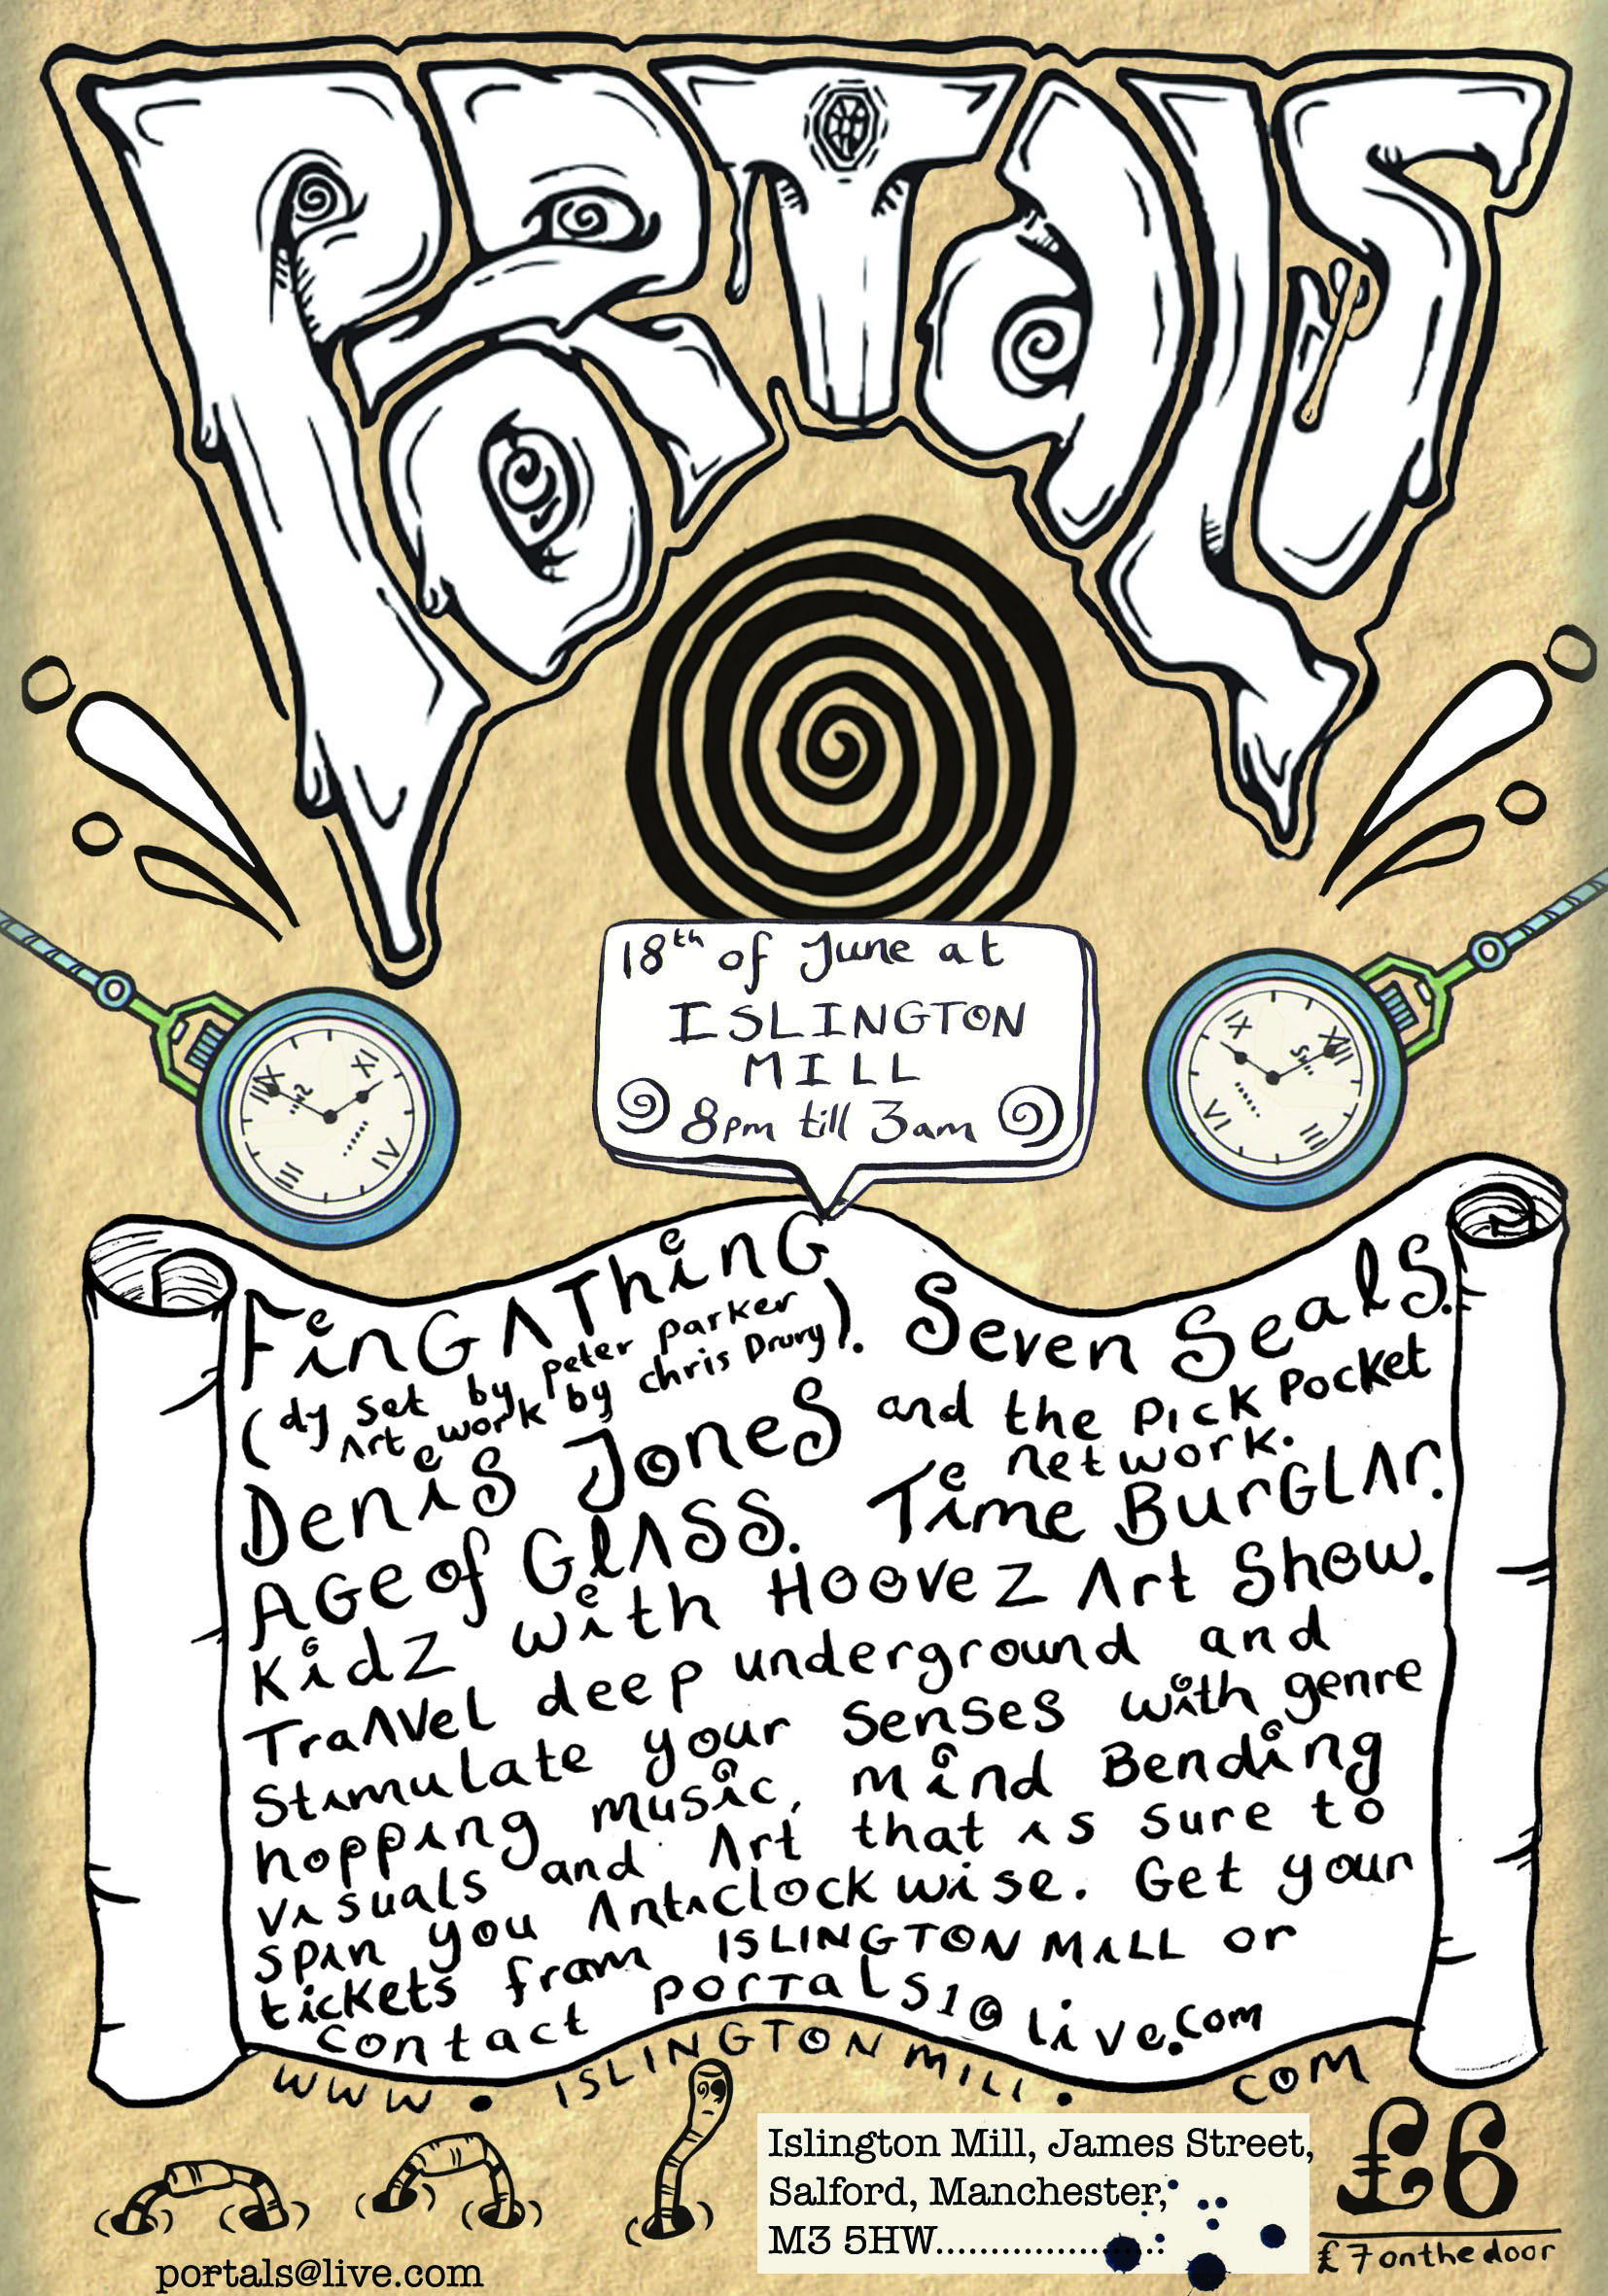 PORTALS
18th of June at
ISLINGTON
MILL
8pm till 3am
FinGAThinG
(dj set by peter parker
Art work by chris Drury). Seven Seals.
Denis Jones and the pick pocket
network.
AGe of GlASS. Time BurGLAr.
Kidz with HooveZ Art Show.
TraAVel deep underground and
Stimulate your senses with genre
hopping music, mind Bending
visuals and Art that is sure to
spin you Anticlockwise. Get your
tickets from ISLINGTON MiLL or
contact portals1@live.com
www.ISLINGTONMILL.com
Islington Mill, James Street,
Salford, Manchester,
M3 5HW
£6
£7 on the door
portals@live.com